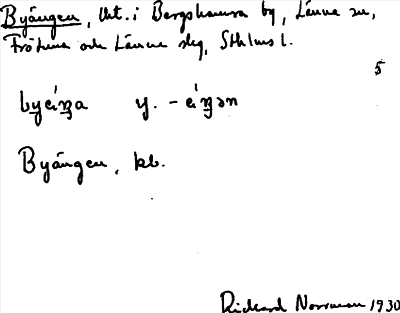 Byängen, tkt. i Bergshamra by, Länna sn,
Fröhuna och Länna slg, Sthlms l.
5
byeŋa y. - eŋən
Byängen, kb.
Rickard Norrman 1930